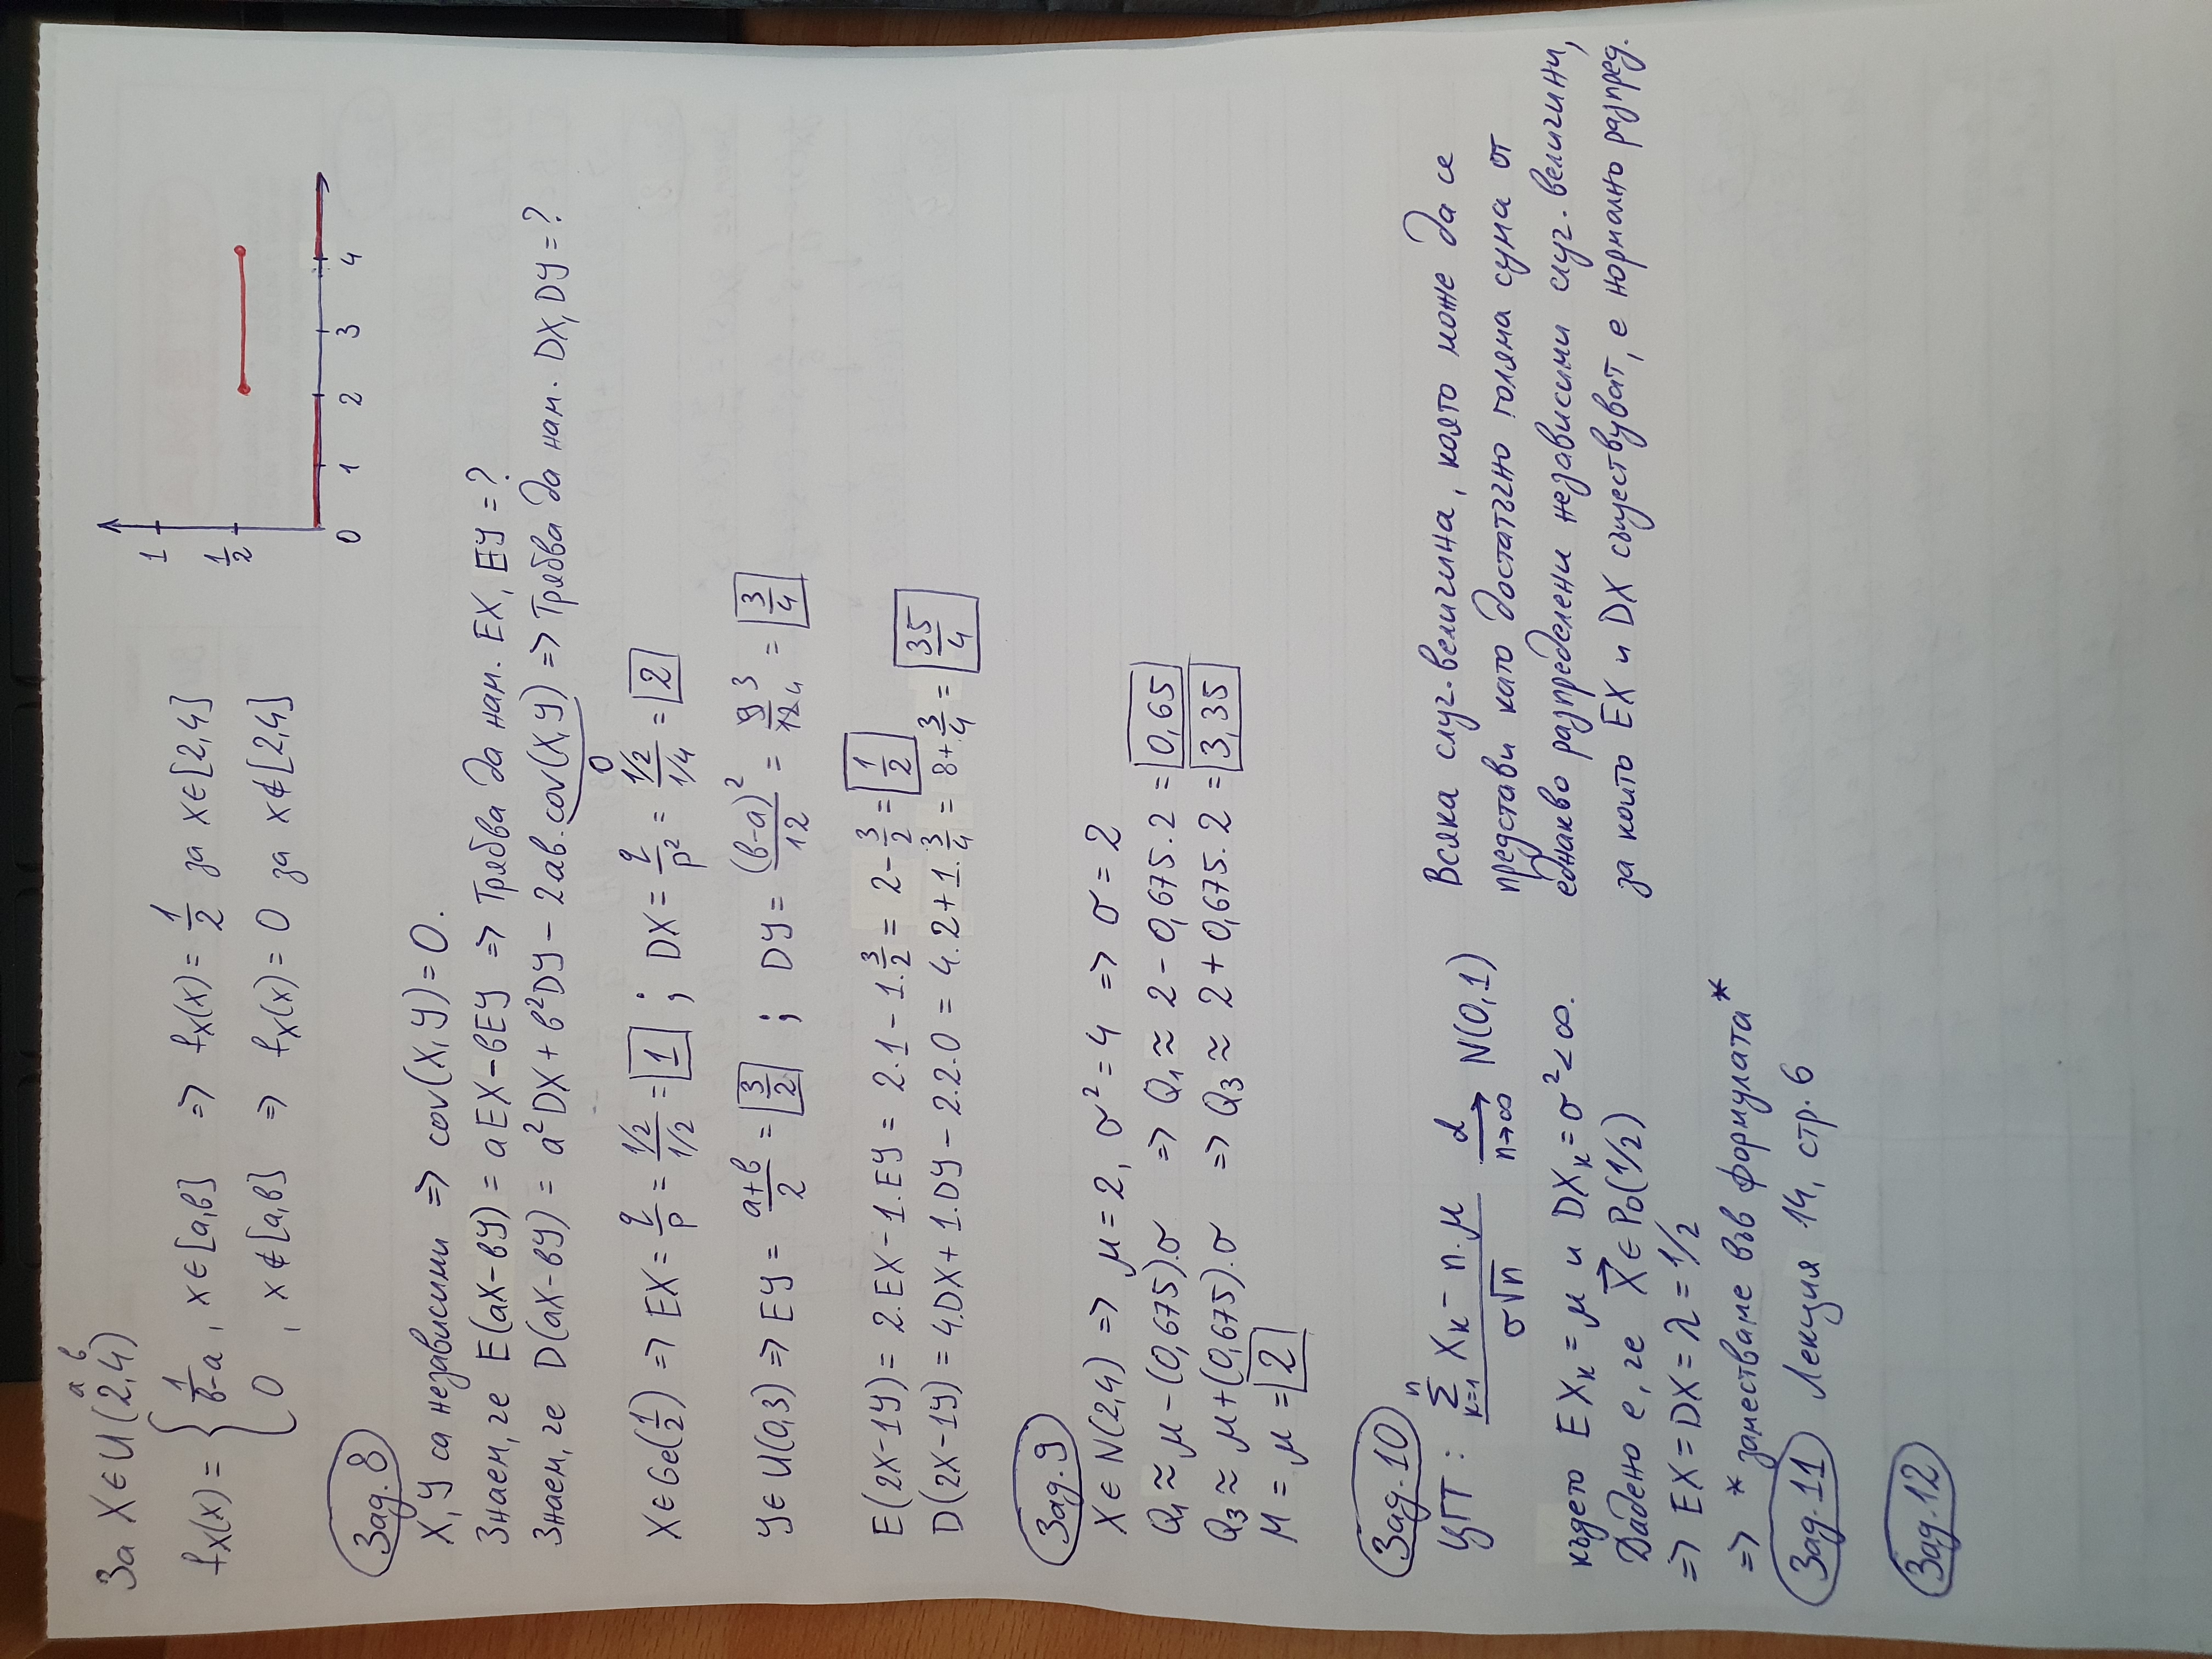 a b
За X ∈ U(2,4)
fX(x) = { 1/(b-a), x ∈ [a,b] => fX(x) = 1/2 за x ∈ [2,4]
0, x ∉ [a,b] => fX(x) = 0 за x ∉ [2,4]
1
1/2
0 1 2 3 4
Зад. 8
X, Y са независими => cov(X, Y) = 0.
Знаем, че E(aX-bY) = aEX-bEY => Трябва да нам. EX, EY = ?
Знаем, че D(aX-bY) = a²DX + b²DY - 2ab.cov(X,Y) => Трябва да нам. DX, DY = ?
0
X ∈ Ge(1/2) => EX = q/p = (1/2)/(1/2) = 1 ; DX = q/p² = (1/2)/(1/4) = 2
Y ∈ U(0,3) => EY = (a+b)/2 = 3/2 ; DY = (b-a)²/12 = 9 3/12 4 = 3/4
E(2X-1Y) = 2.EX - 1.EY = 2.1 - 1.3/2 = 2 - 3/2 = 1/2
D(2X-1Y) = 4.DX + 1.DY - 2.2.0 = 4.2 + 1.3/4 = 8 + 3/4 = 35/4
Зад. 9
X ∈ N(2,4) => μ = 2, σ² = 4 => σ = 2
Q1 ≈ μ - (0,675).σ => Q1 ≈ 2 - 0,675.2 = 0,65
Q3 ≈ μ + (0,675).σ => Q3 ≈ 2 + 0,675.2 = 3,35
M = μ = 2
Зад. 10
ЦГТ : (∑ k=1 n Xk - n.μ)/(σ√n) d → n→∞ N(0,1)
където EXk = μ и DXk = σ² < ∞.
Дадено е, че X⃗ ∈ Po(1/2)
=> EX = DX = λ = 1/2
=> *заместваме във формулата*
Всяка случ. величина, която може да се
представи като достатъчно голяма сума от
еднакво разпределени независими случ. величини,
за които EX и DX съществуват, е нормално разпред.
Зад. 11 Лекция 14, стр. 6
Зад. 12